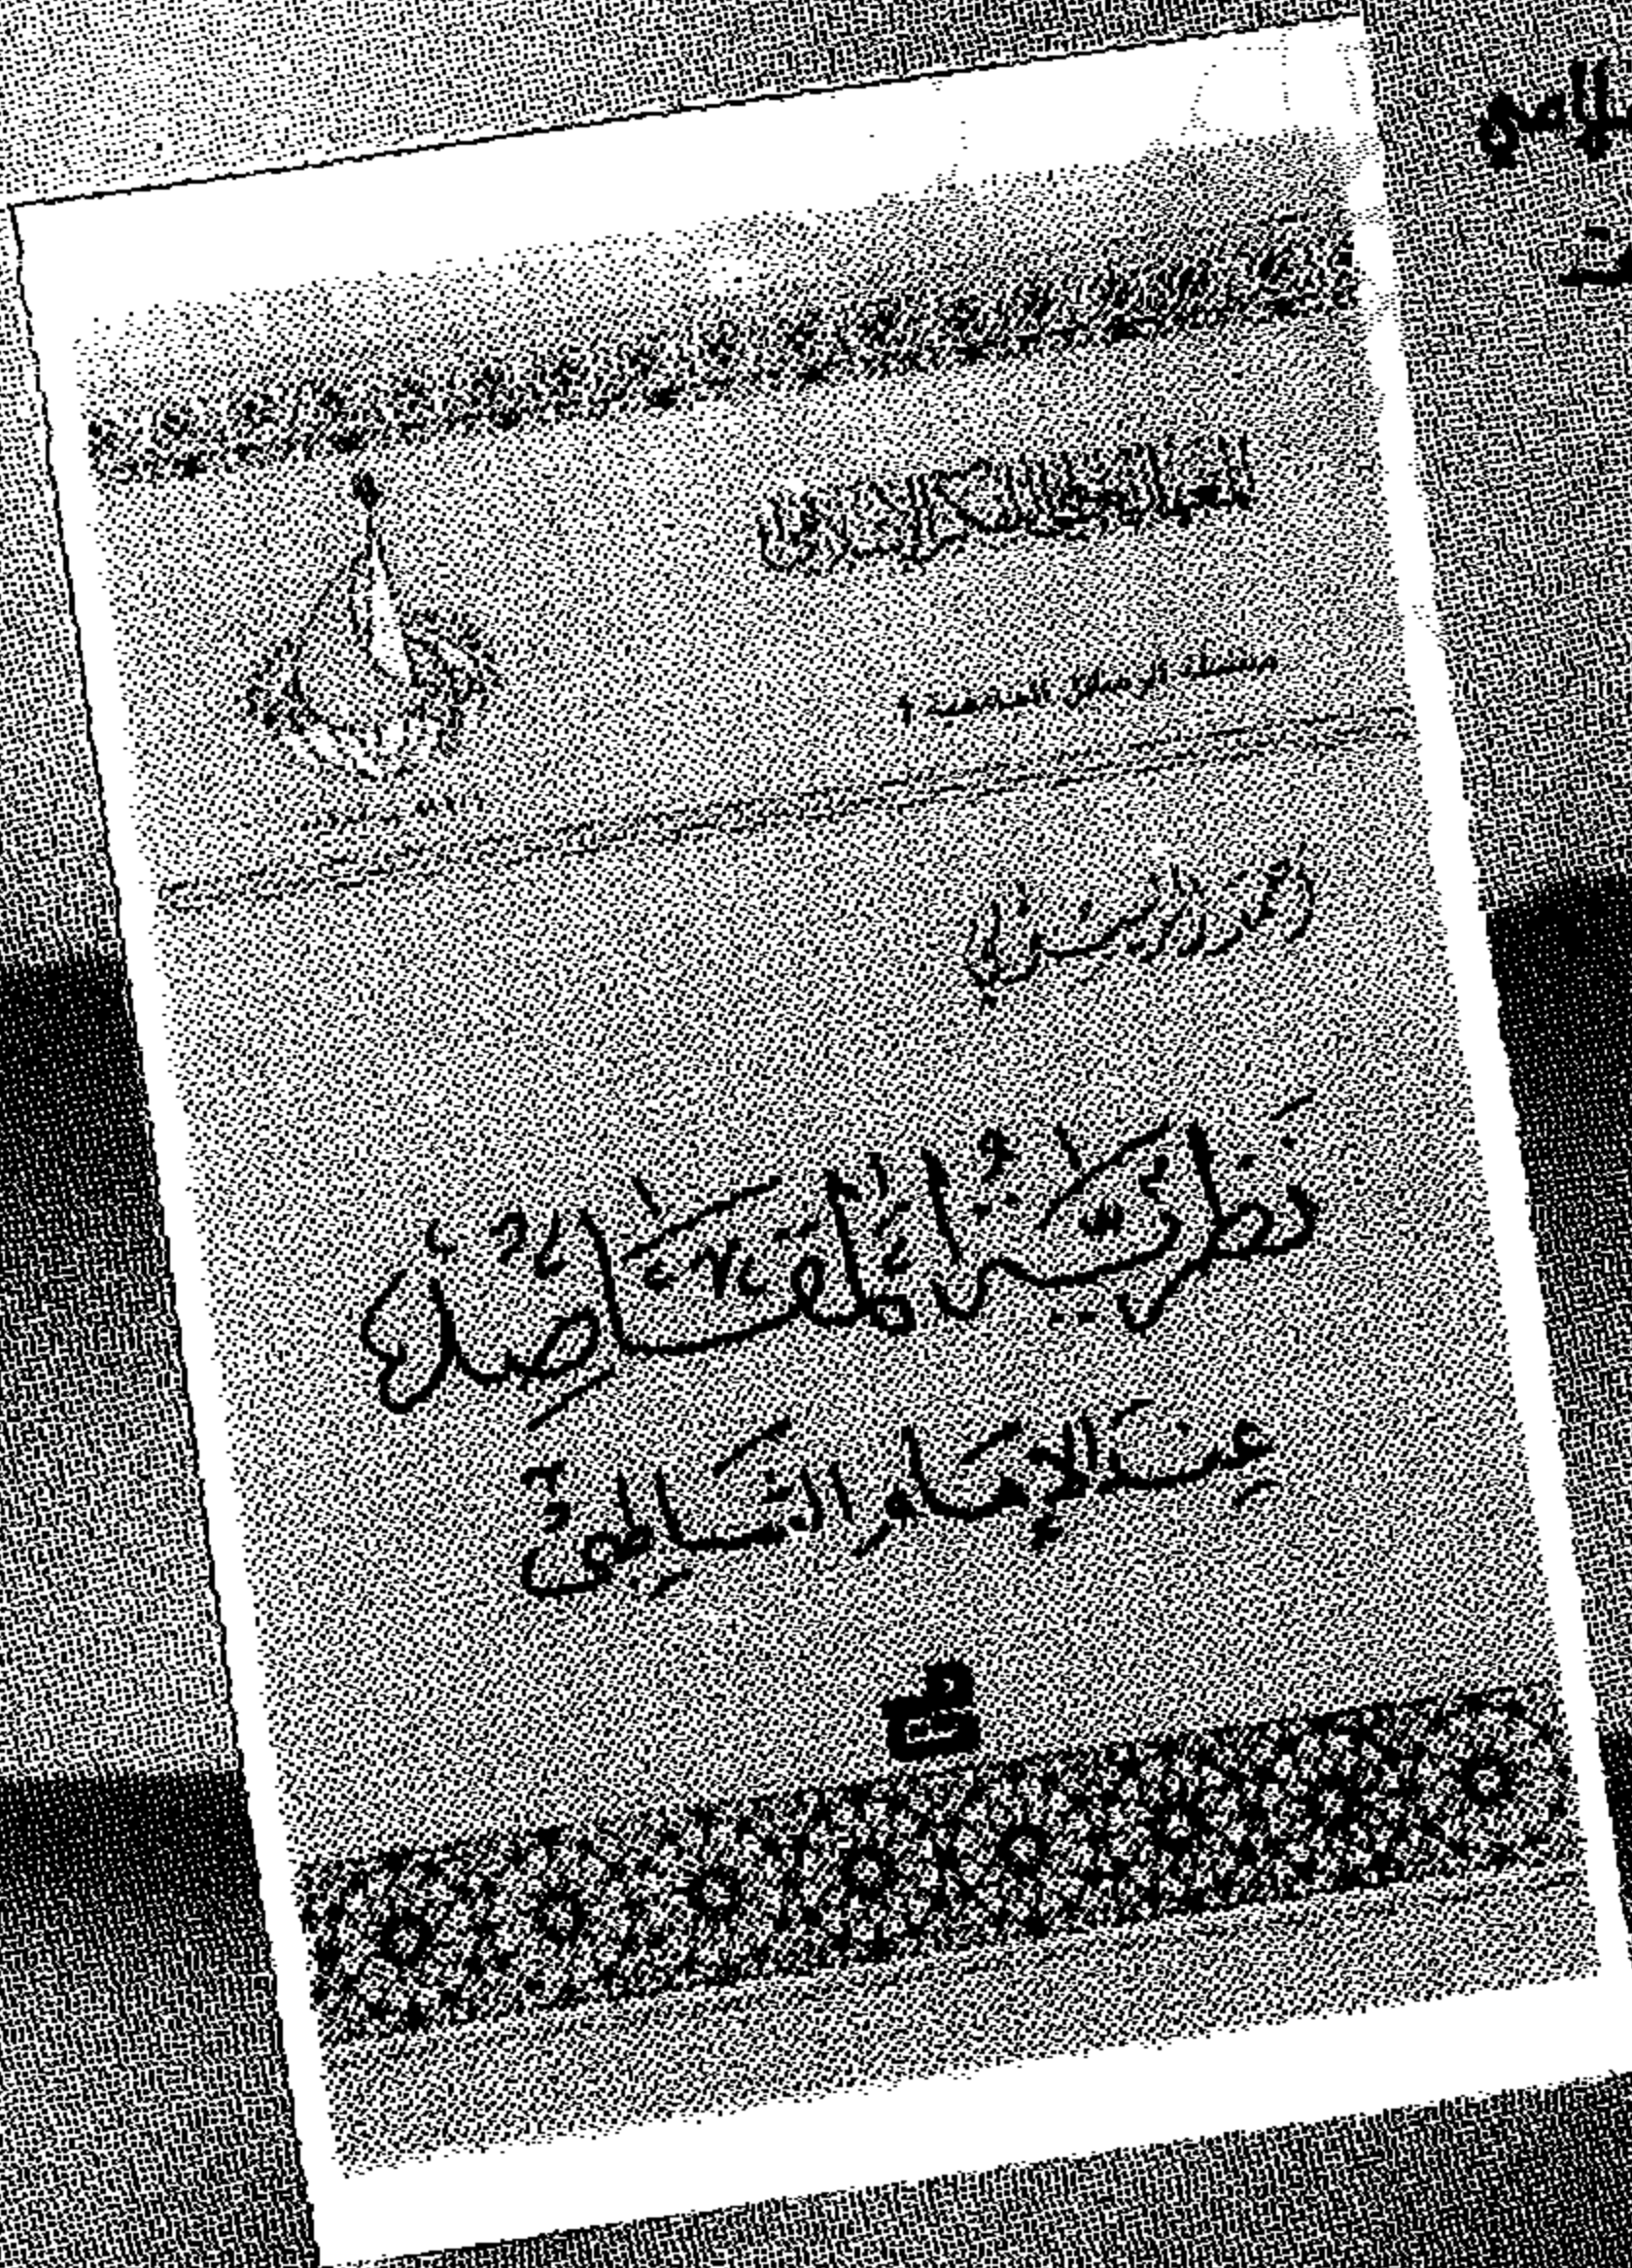 المعهد العالمي للفكر الإسلامي
سلسلة الرسائل الجامعية ١
أحمد الريسوني
نَظَرِيَّةُ المَقَاصِدِ
عِندَ الإِمَامِ الشَّاطِبِيِّ